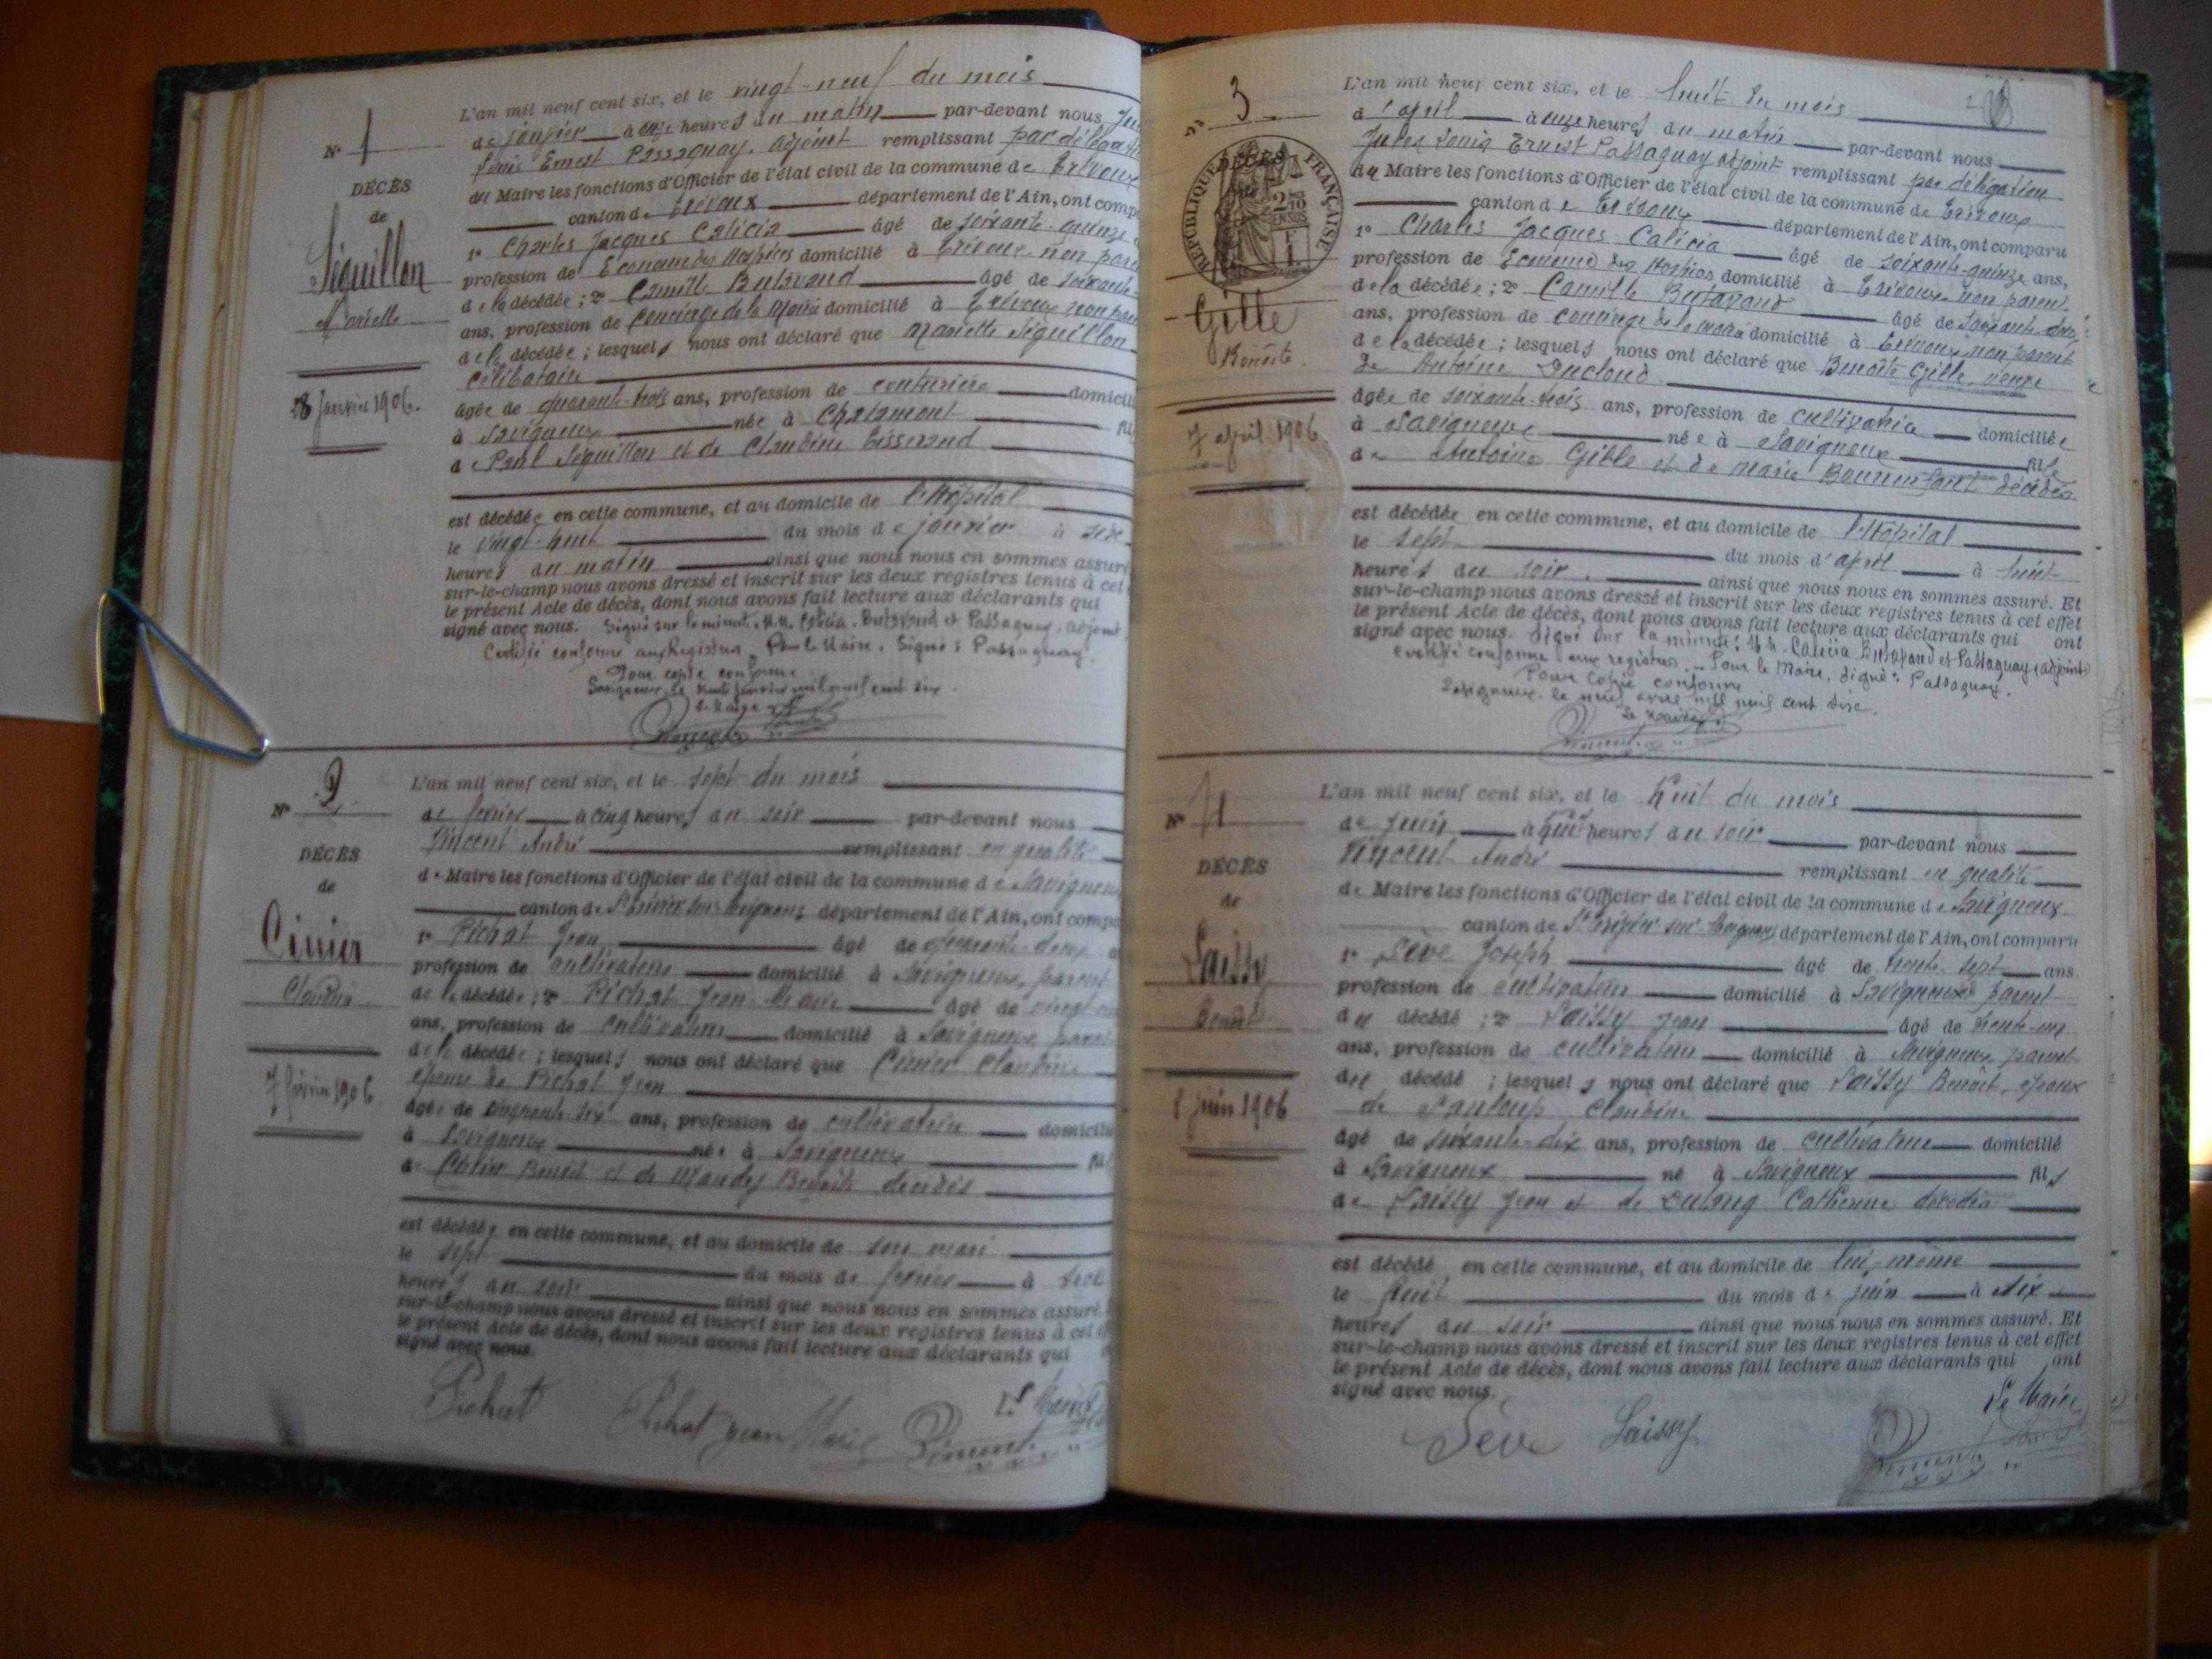 N° 1
DÉCÈS
de
Séguillon
Mariette
28 Janvier 1906.
L'an mil neuf cent six, et le vingt-neuf du mois
de janvier à onze heures du matin par-devant nous
Louis Ernest Passaguay, adjoint remplissant par délégation
du Maire les fonctions d'Officier de l'état civil de la commune de Trévoux
canton de Trévoux département de l'Ain, ont comp
1° Charles Jacques Calicia âgé de soixante-quinze
profession de Econome des Hospices domicilié à Trévoux non paren
de la décédée ; 2° Camille Butavand âgé de soixante-
ans, profession de concierge de la Mairie domicilié à Trévoux non paren
de la décédée ; lesquels nous ont déclaré que Mariette Séguillon
célibataire
âgée de quarante-trois ans, profession de couturière domicili
à Savigneux née à Chalamont fil
de Paul Séguillon et de Claudine Tisserand
est décédée en cette commune, et au domicile de l'Hôpital
le vingt-huit du mois de janvier à six
heures du matin ainsi que nous nous en sommes assuré
sur-le-champ nous avons dressé et inscrit sur les deux registres tenus à cet
le présent Acte de décès, dont nous avons fait lecture aux déclarants qui
signé avec nous. Signé sur la minute. M.M. Calicia, Butavand et Passaguay, adjoint.
Certifié conforme aux Registres. Pour le Maire. Signé : Passaguay.
Pour copie conforme
Savigneux, le janvier mil neuf cent six.
Le Maire
N° 2
DÉCÈS
de
Cinier
Claudine
7 février 1906.
L'an mil neuf cent six, et le sept du mois
de février à cinq heures du soir par-devant nous
Vincent André remplissant en qualité
de Maire les fonctions d'Officier de l'état civil de la commune de Savigneux
canton de St Trivier sur Moignans département de l'Ain, ont compa
1° Pichat Jean âgé de quarante-deux
profession de cultivateur domicilié à Savigneux, parent
de la décédée ; 2° Pichat Jean-Marie âgé de vingt-
ans, profession de cultivateur domicilié à Savigneux, parent
de la décédée ; lesquels nous ont déclaré que Cinier Claudine
épouse de Pichat Jean
âgée de cinquante-six ans, profession de cultivatrice domicili
à Savigneux née à Savigneux fil
de Cinier Benoît et de Mandy Benoîte décédés
est décédée en cette commune, et au domicile de son mari
le sept du mois de février à trois
heures du soir ainsi que nous nous en sommes assuré
sur-le-champ nous avons dressé et inscrit sur les deux registres tenus à cet
le présent Acte de décès, dont nous avons fait lecture aux déclarants qui
signé avec nous.
Le Maire
Pichat Pichat Jean Marie Vincent
N° 3
DÉCÈS
RÉPUBLIQUE FRANÇAISE
2/10 EN SUS
Gille
Benoîte.
7 avril 1906
L'an mil neuf cent six, et le huit du mois
d'avril à onze heures du matin par-devant nous
Jules Louis Ernest Passaguay adjoint remplissant par délégation
du Maire les fonctions d'Officier de l'état civil de la commune de Trévoux
canton de Trévoux département de l'Ain, ont comparu
1° Charles Jacques Calicia âgé de soixante-quinze ans,
profession de Econome des Hospices domicilié à Trévoux non parent
de la décédée ; 2° Camille Butavand âgé de soixante-
ans, profession de concierge de la mairie domicilié à Trévoux non parent
de la décédée ; lesquels nous ont déclaré que Benoîte Gille, veuve
de Antoine Ducloud
âgée de soixante-trois ans, profession de cultivatrice domiciliée
à Savigneux née à Savigneux fille
de Antoine Gille et de Marie Bonnenfant décédés
est décédée en cette commune, et au domicile de l'Hôpital
le sept du mois d'avril à huit
heures du soir. ainsi que nous nous en sommes assuré. Et
sur-le-champ nous avons dressé et inscrit sur les deux registres tenus à cet effet
le présent Acte de décès, dont nous avons fait lecture aux déclarants qui ont
signé avec nous. Signé sur la minute : M.M. Calicia Butavand et Passaguay (adjoint)
Certifié conforme aux registres. - Pour le Maire, Signé : Passaguay.
Pour Copie conforme
Savigneux le neuf avril mil neuf cent six.
Le Maire
N° 4
DÉCÈS
de
Saissy
Benoît
8 juin 1906
L'an mil neuf cent six, et le huit du mois
de juin à huit heures du soir par-devant nous
Vincent André remplissant en qualité
de Maire les fonctions d'Officier de l'état civil de la commune de Savigneux
canton de St Trivier sur Moignans département de l'Ain, ont comparu
1° Sève Joseph âgé de trente-sept ans.
profession de cultivateur domicilié à Savigneux parent
du décédé ; 2° Saissy Jean âgé de trente-un
ans, profession de cultivateur domicilié à Savigneux parent
du décédé ; lesquels nous ont déclaré que Saissy Benoît, époux
de Claudine
âgé de soixante-dix ans, profession de cultivateur domicilié
à Savigneux né à Savigneux fils
de Saissy Jean et de Dulong Catherine décédés
est décédé en cette commune, et au domicile de lui-même
le huit du mois de juin à six
heures du soir ainsi que nous nous en sommes assuré. Et
sur-le-champ nous avons dressé et inscrit sur les deux registres tenus à cet effet
le présent Acte de décès, dont nous avons fait lecture aux déclarants qui ont
signé avec nous.
Le Maire
Sève Saissy Vincent